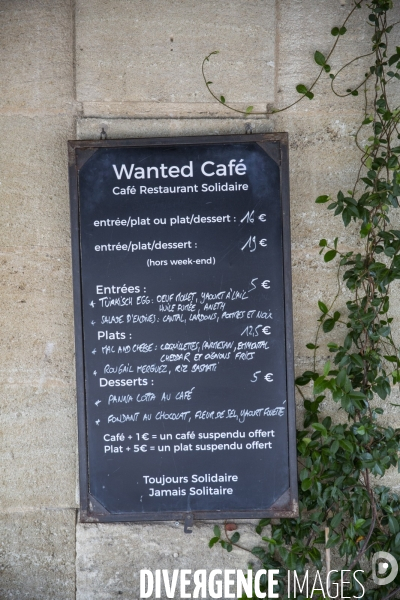 Wanted Café
Café Restaurant Solidaire
entrée/plat ou plat/dessert : 16 €
entrée/plat/dessert : 19 €
(hors week-end)
Entrées : 5 €
* TURKISCH EGG : OEUF MOLLET, YAOURT À L'AIL
HUILE FUMÉE, ANETH
* SALADE D'ENDIVE : CANTAL, LARDONS, POMMES ET NOIX
Plats : 12,5 €
* MAC AND CHEESE : COQUILLETTES, PARMESAN, EMMENTAL
CHEDDAR ET OIGNONS FRITS
* ROUGAIL MERGUEZ, RIZ BASMATI
Desserts : 5 €
* PANNA COTTA AU CAFÉ
* FONDANT AU CHOCOLAT, FLEUR DE SEL, YAOURT FOUETÉ
Café + 1€ = un café suspendu offert
Plat + 5€ = un plat suspendu offert
Toujours Solidaire
Jamais Solitaire
DIVERGENCE IMAGES